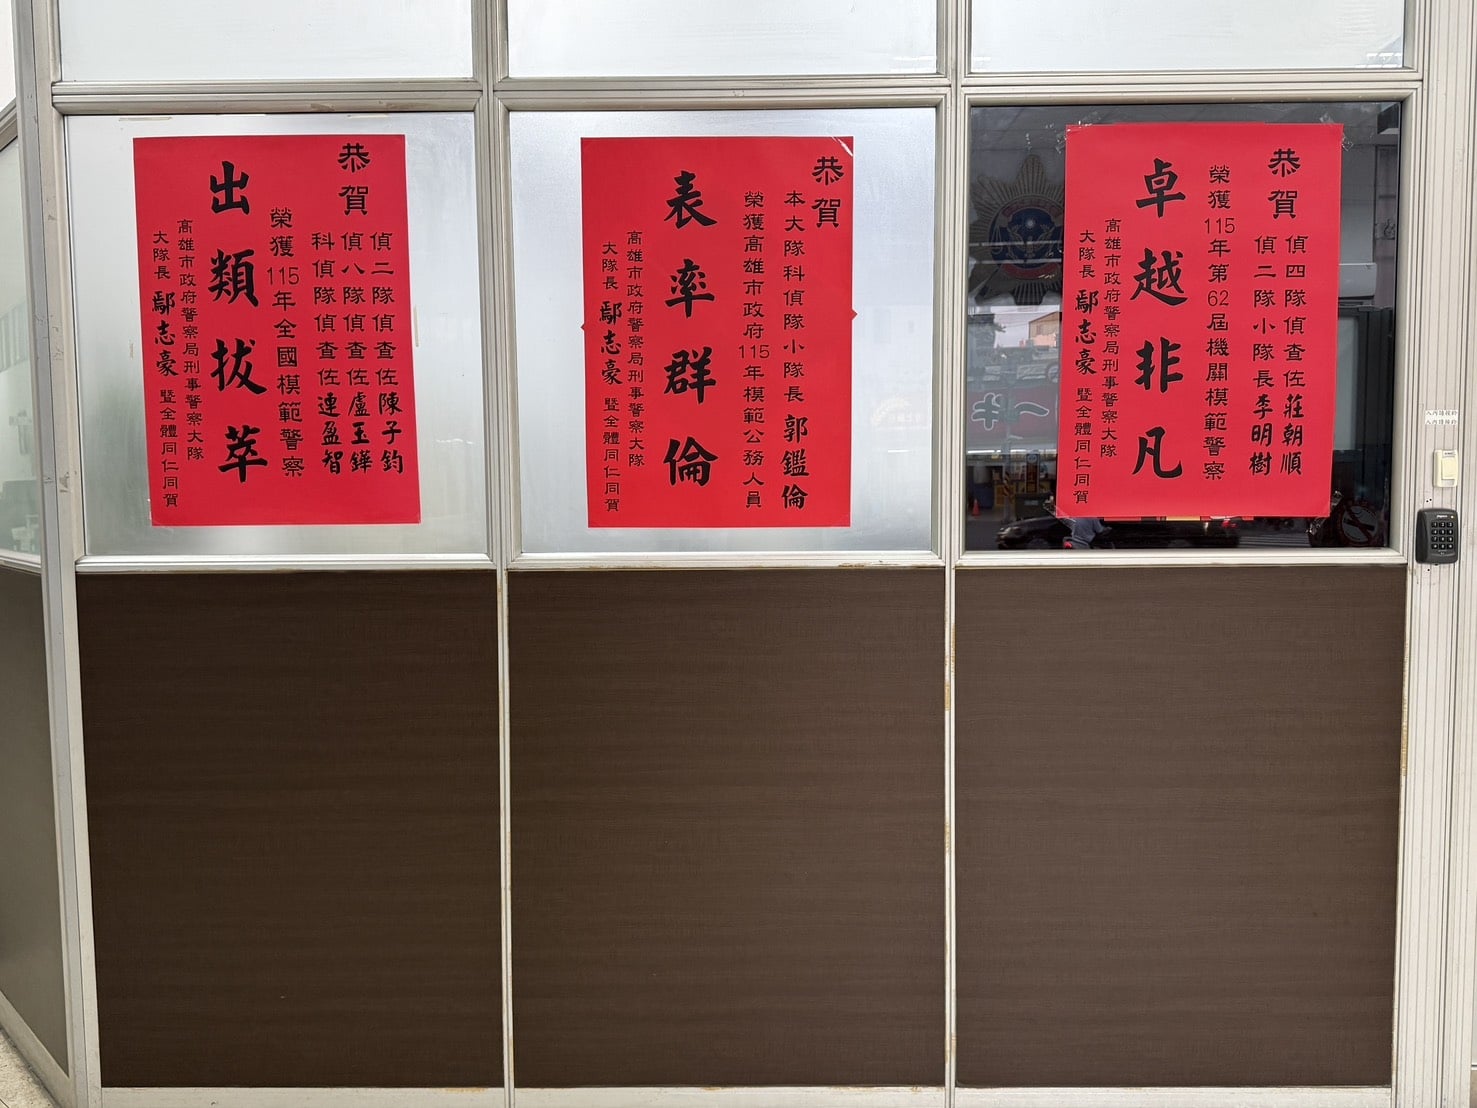 恭賀
偵二隊偵查佐陳子鈞
偵八隊偵查佐盧玉鏵
科偵隊偵查佐連盈智
榮獲115年全國模範警察
出類拔萃
高雄市政府警察局刑事警察大隊
大隊長 鄢志豪 暨全體同仁同賀
恭賀
本大隊科偵隊小隊長 郭鑑倫
榮獲高雄市政府115年模範公務人員
表率群倫
高雄市政府警察局刑事警察大隊
大隊長 鄢志豪 暨全體同仁同賀
恭賀
偵四隊偵查佐莊朝順
偵二隊小隊長李明樹
榮獲115年第62屆機關模範警察
卓越非凡
高雄市政府警察局刑事警察大隊
大隊長 鄢志豪 暨全體同仁同賀